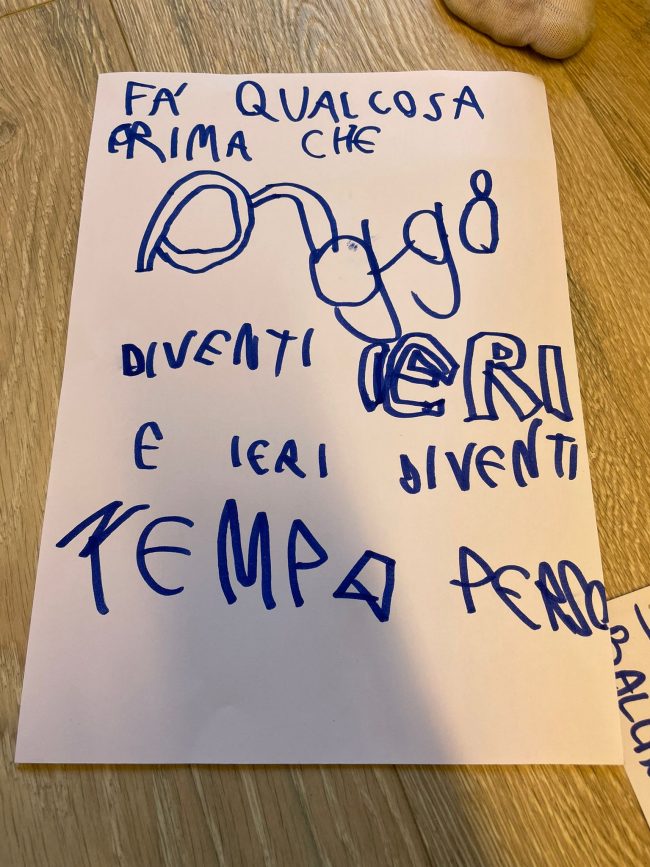 FA' QUALCOSA
PRIMA CHE
oggi
DIVENTI IERI
E IERI DIVENTI
TEMPO PERSO